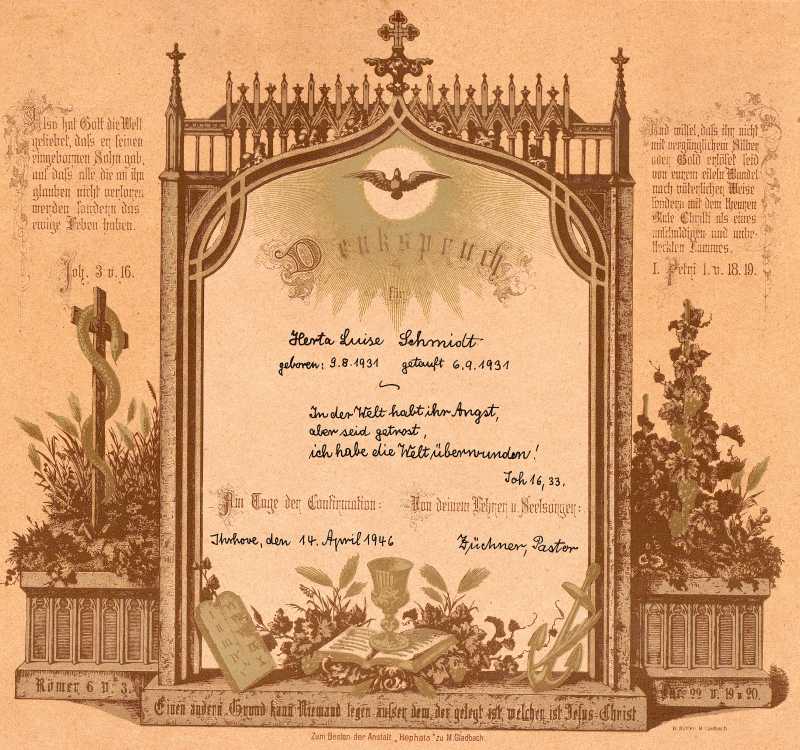 Also hat Gott die Welt
geliebet, daß er seinen
eingebornen Sohn gab,
auf daß alle die an ihn
glauben nicht verloren
werden sondern das
ewige Leben haben.
Joh. 3 v. 16.
Und wisset, daß ihr nicht
mit vergänglichem Silber
oder Gold erlöset seid
von eurem eiteln Wandel
nach väterlicher Weise
sondern mit dem theuren
Blute Christi als eines
unschuldigen und unbe-
fleckten Lammes.
I. Petri 1. v. 18.19.
Denkspruch
für
Herta Luise Schmidt
geboren: 9.8.1931 getauft 6.9.1931
In der Welt habt ihr Angst,
aber seid getrost,
ich habe die Welt überwunden!
Joh 16,33.
Am Tage der Confirmation: Von deinem Lehrer u. Seelsorger:
Ihrhove, den 14. April 1946 Züchner, Pastor
Römer 6 v. 3.
Luc. 22 v. 19 u 20.
Einen andern Grund kann Niemand legen außer dem, der gelegt ist, welcher ist Jesus-Christ
Zum Besten der Anstalt „Hephata" zu M. Gladbach.